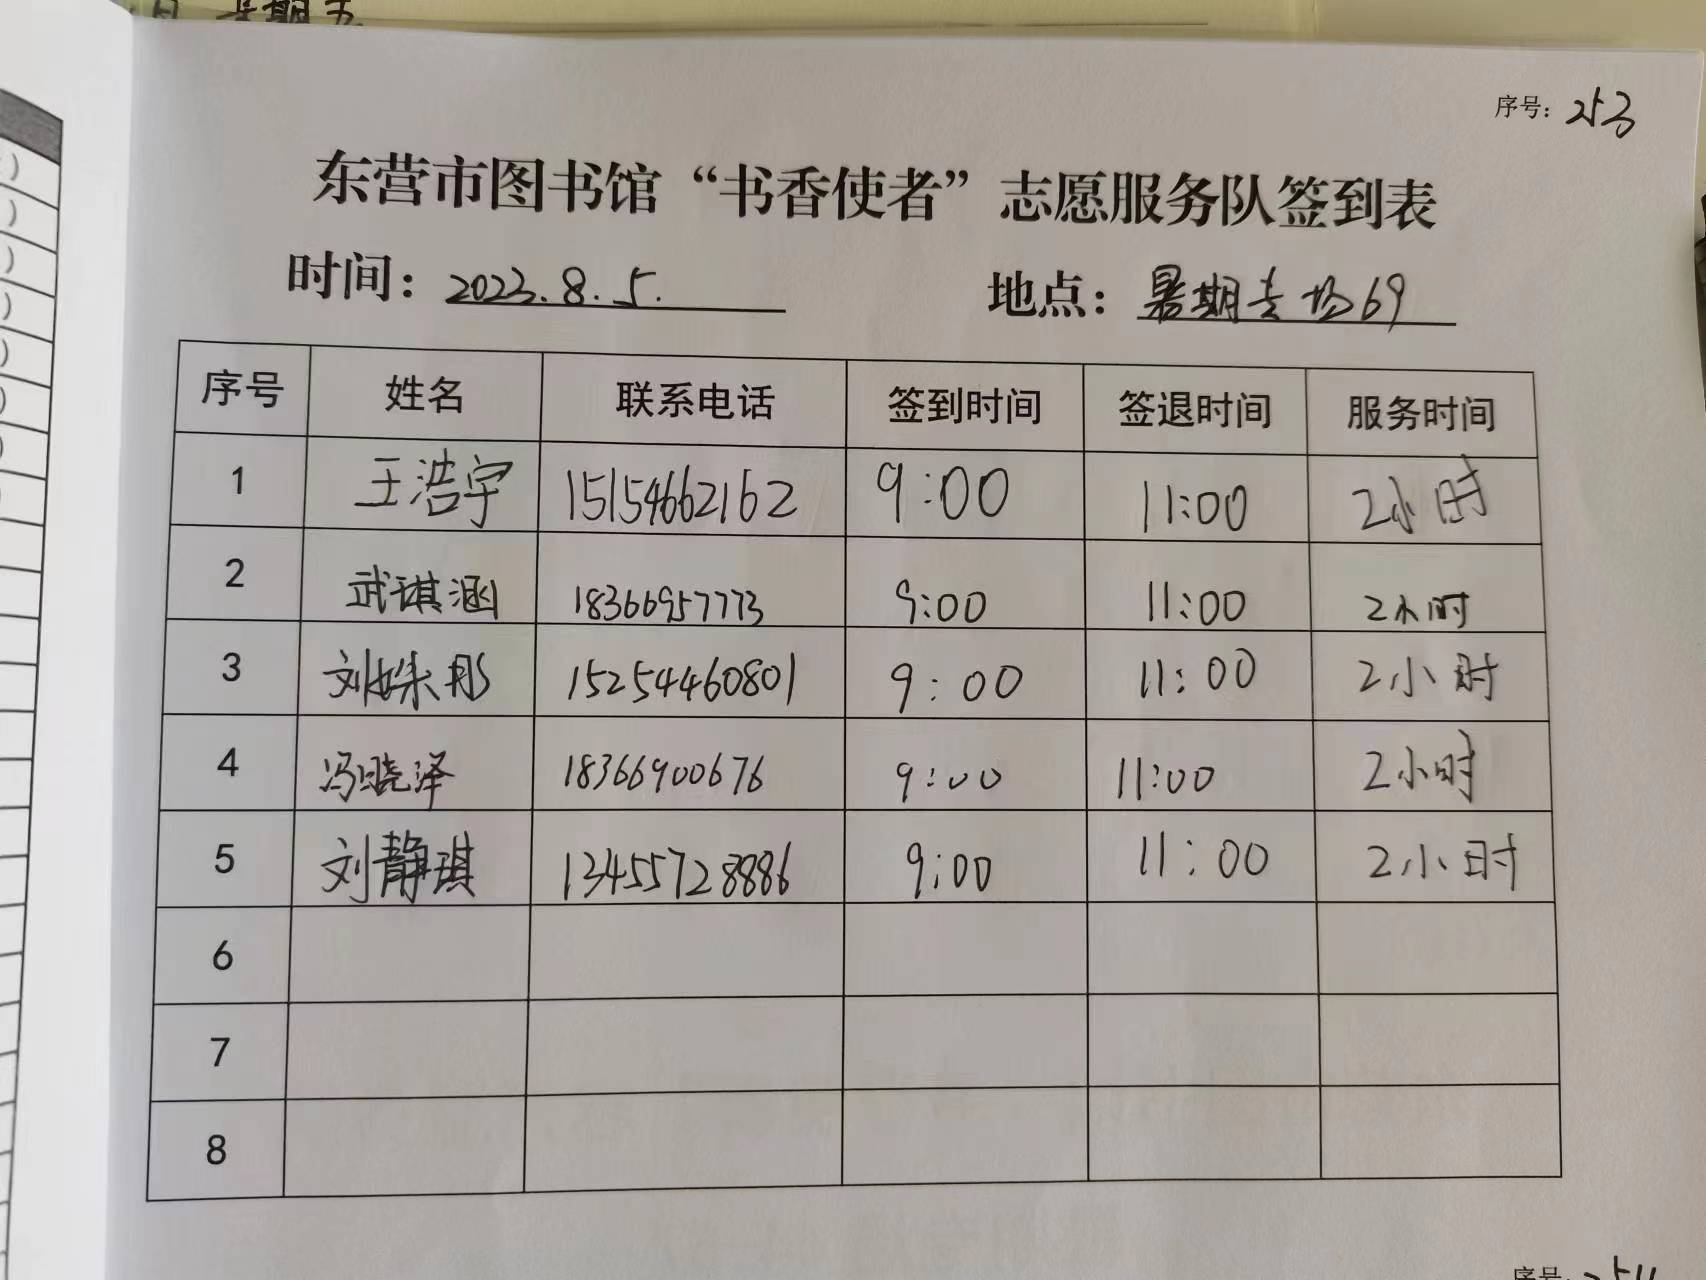 星期五
序号：253
东营市图书馆“书香使者”志愿服务队签到表
时间：2023.8.5.
地点：暑期专场69
序号 姓名 联系电话 签到时间 签退时间 服务时间
1 王浩宇 15154662162 9:00 11:00 2小时
2 武琪涵 18366957773 9:00 11:00 2小时
3 刘姝彤 15254460801 9:00 11:00 2小时
4 冯晓泽 18366900676 9:00 11:00 2小时
5 刘静琪 13455728886 9:00 11:00 2小时
6
7
8
序号: